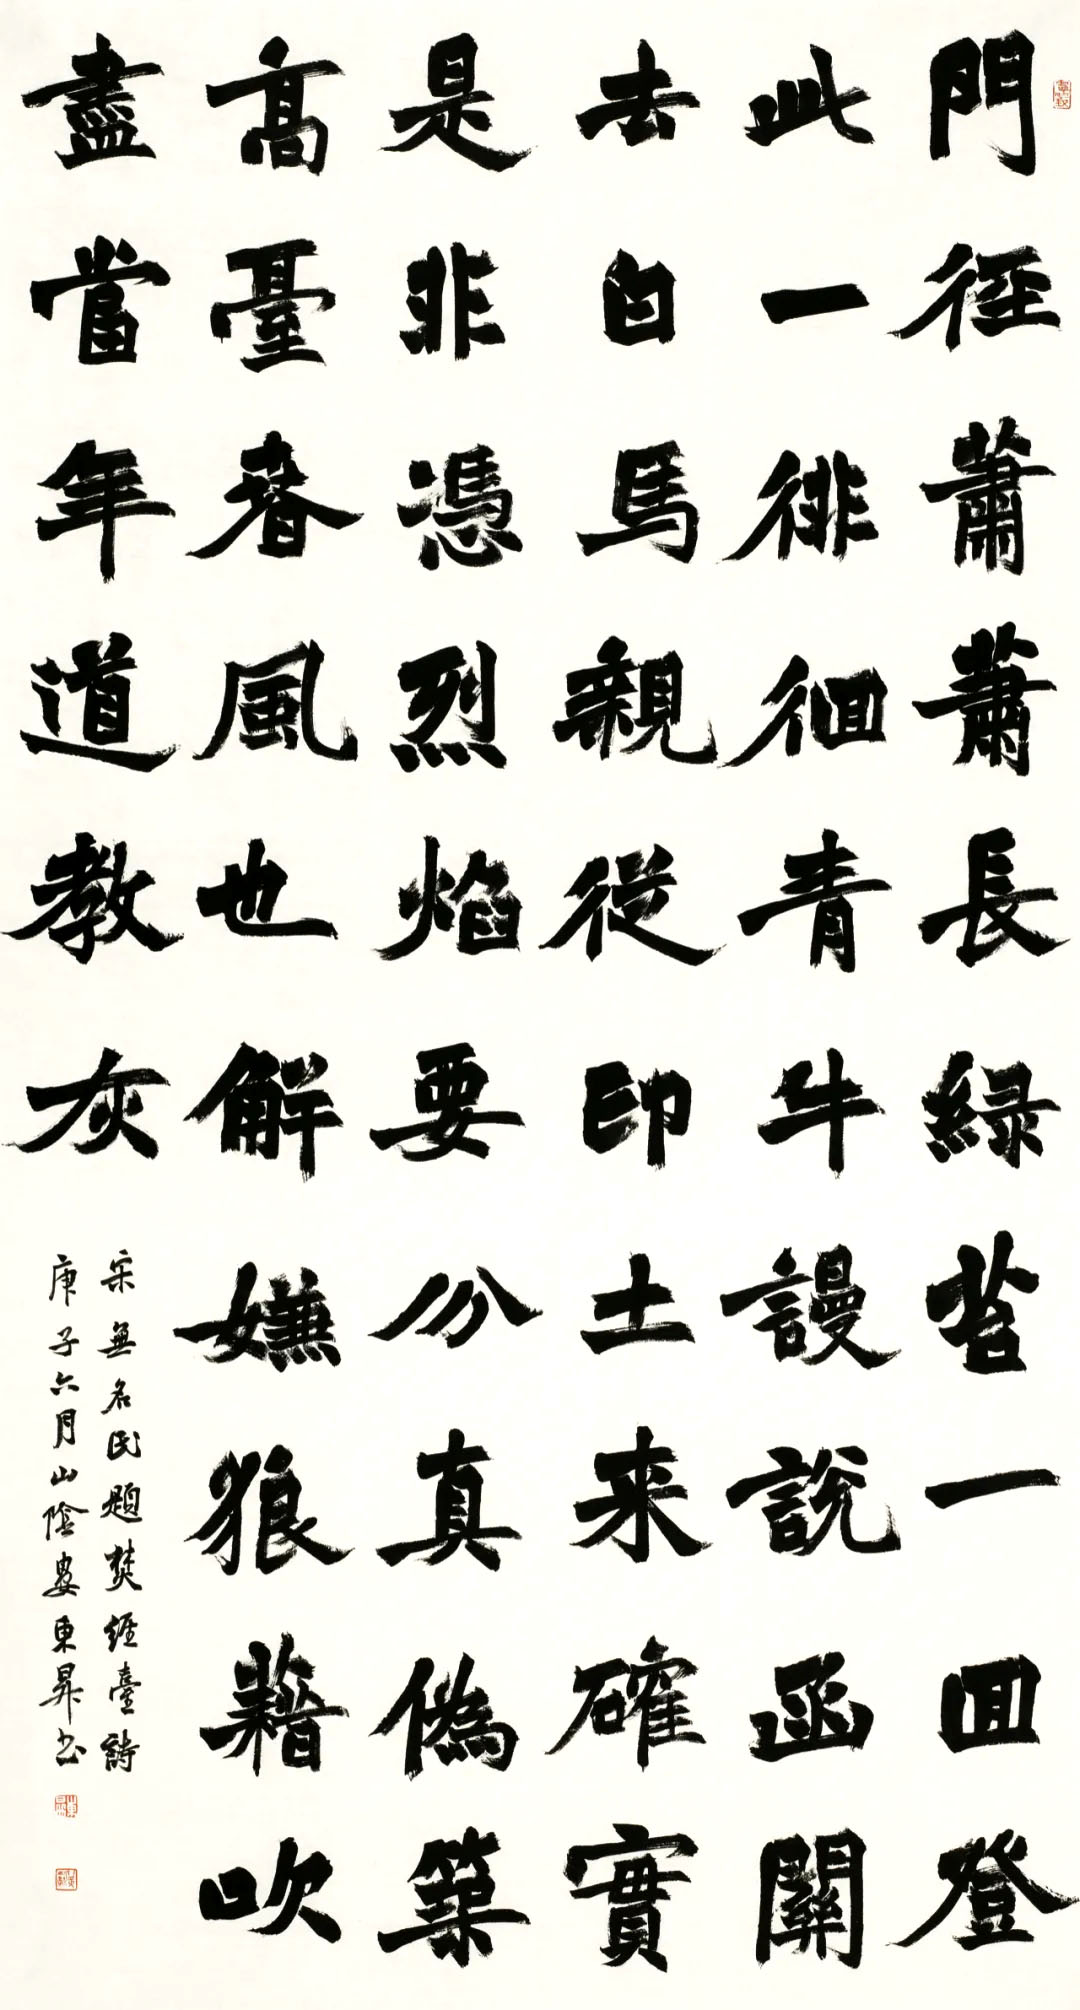 門徑蕭蕭長緑苔一回登
此一徘徊青牛謾説函關
去白馬親從印土来確實
是非憑烈焰要分真偽築
高臺春風也解嫌狼藉吹
盡當年道教灰
宋無名民題焚經臺詩
庚子六月山陰婁東昇书